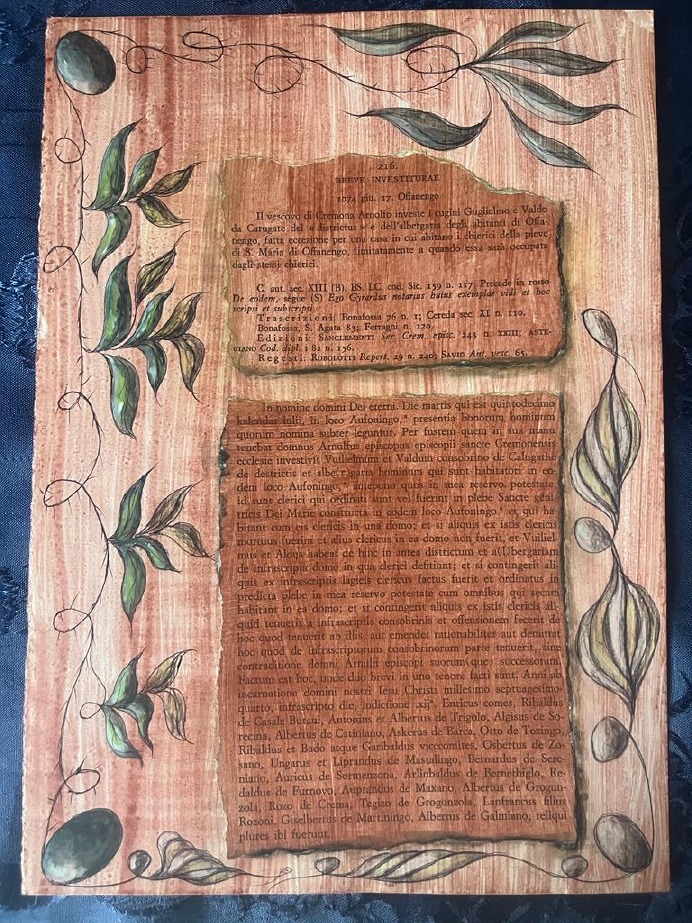 216.
BREVE INVESTITURAE
1074 giu. 17. Offanengo
Il vescovo di Cremona Arnolfo investe i cugini Guglielmo e Valdo
da Carugate del « districtus » e dell'albergaria degli abitanti di Offa-
nengo, fatta eccezione per una casa in cui abitano i chierici della pieve
di S. Maria di Offanengo, limitatamente a quando essa sarà occupata
dagli stessi chierici.
C. aut. sec. XIII (B). BS. LC. cod. Sic. 159 n. 117. Precede in rosso
De eodem, segue (S) Ego Gyrardus notarius huius exemplar vidi et hoc
scripsi et subscripsi.
Trascrizioni: Bonafossa 76 n. 1; Cereda sec. XI n. 110.
Bonafossa, S. Agata 83; Ferragni n. 120.
Edizioni: SANCLEMENTI Ser Crem. episc. 243 n. XXIII; ASTE-
GIANO Cod. dipl. I 82 n. 136.
Regesti: ROBOLOTTI Repert. 29 n. 240; SAVIO Ant. vesc. 65.
In nomine domini Dei eterni. Die martis qui est quintodecimo
kalendas iulii, in loco Aufoningo, presentia bonorum hominum
quorum nomina subter leguntur. Per fustem quem in sua manu
tenebat domnus Arnulfus episcopus episcopii sancte Cremonensis
ecclesie investivit Vuilielmum et Valdum consobrino de Calugathe
de destrictis et albe(r)gariis hominum qui sunt habitatori in eo-
dem loco Aufoningo, antepono quos in mea reservo potestate,
id sunt clerici qui ordinati sunt vel fuerint in plebe Sancte geni-
tricis Dei Marie constructa in eodem loco Aufoningo, et qui ha-
bitant cum eis clericis in una domo; et si aliquis ex istis clericis
mortuus fuerint et alius clericus in ea domo non fuerit, et Vuiliel-
mus et Aldus habeat de hinc in antea districtum et a(l)bergariam
de infrascripta domo in qua clerici defitiunt; et si contingerit ali-
quis ex infrascriptis lagieis clericus factus fuerit et ordinatus in
predicta plebe in mea reservo potestate cum omnibus qui secum
habitant in ea domo; et si contingerit aliquis ex istis clericis ali-
quid tenuerit a infrascriptis consobrinis et offensionem fecerit de
hoc quod tenuerit ab illis, aut emendet rationabiliter aut demittat
hoc quod de infrascriptorum consobrinorum parte tenuerit, sine
contraditione domni Arnulfi episcopi suorum(que) successorum.
Factum est hoc, unde duo brevi in uno tenore facti sunt. Anni ab
incarnatione domini nostri Iesu Christi millesimo septuagesimo-
quarto, infrascripto die, indictione .xii. Enricus comes, Ribaldus
de Casale Butani, Antonius et Albertus de Trigolo, Algisus de So-
recina, Albertus de Catiniano, Askerus de Barca, Otto de Tozingo,
Ribaldus et Bado atque Garibaldus vicecomites, Osbertus de Zo-
sano, Ungarus et Liprandus de Mastalingo, Beinardus de Sere-
niano, Auricus de Sermenzona, Arlinbaldus de Bernethiglo, Re-
daldus de Furnovo, Auprandus de Maxano, Albertus de Grogun-
zola, Rozo de Crema, Tegizo de Grogonzola, Lanfrancus filius
Rozoni, Giselbertus de Martiningo, Albertus de Galniano, reliqui
plures ibi fuerunt.